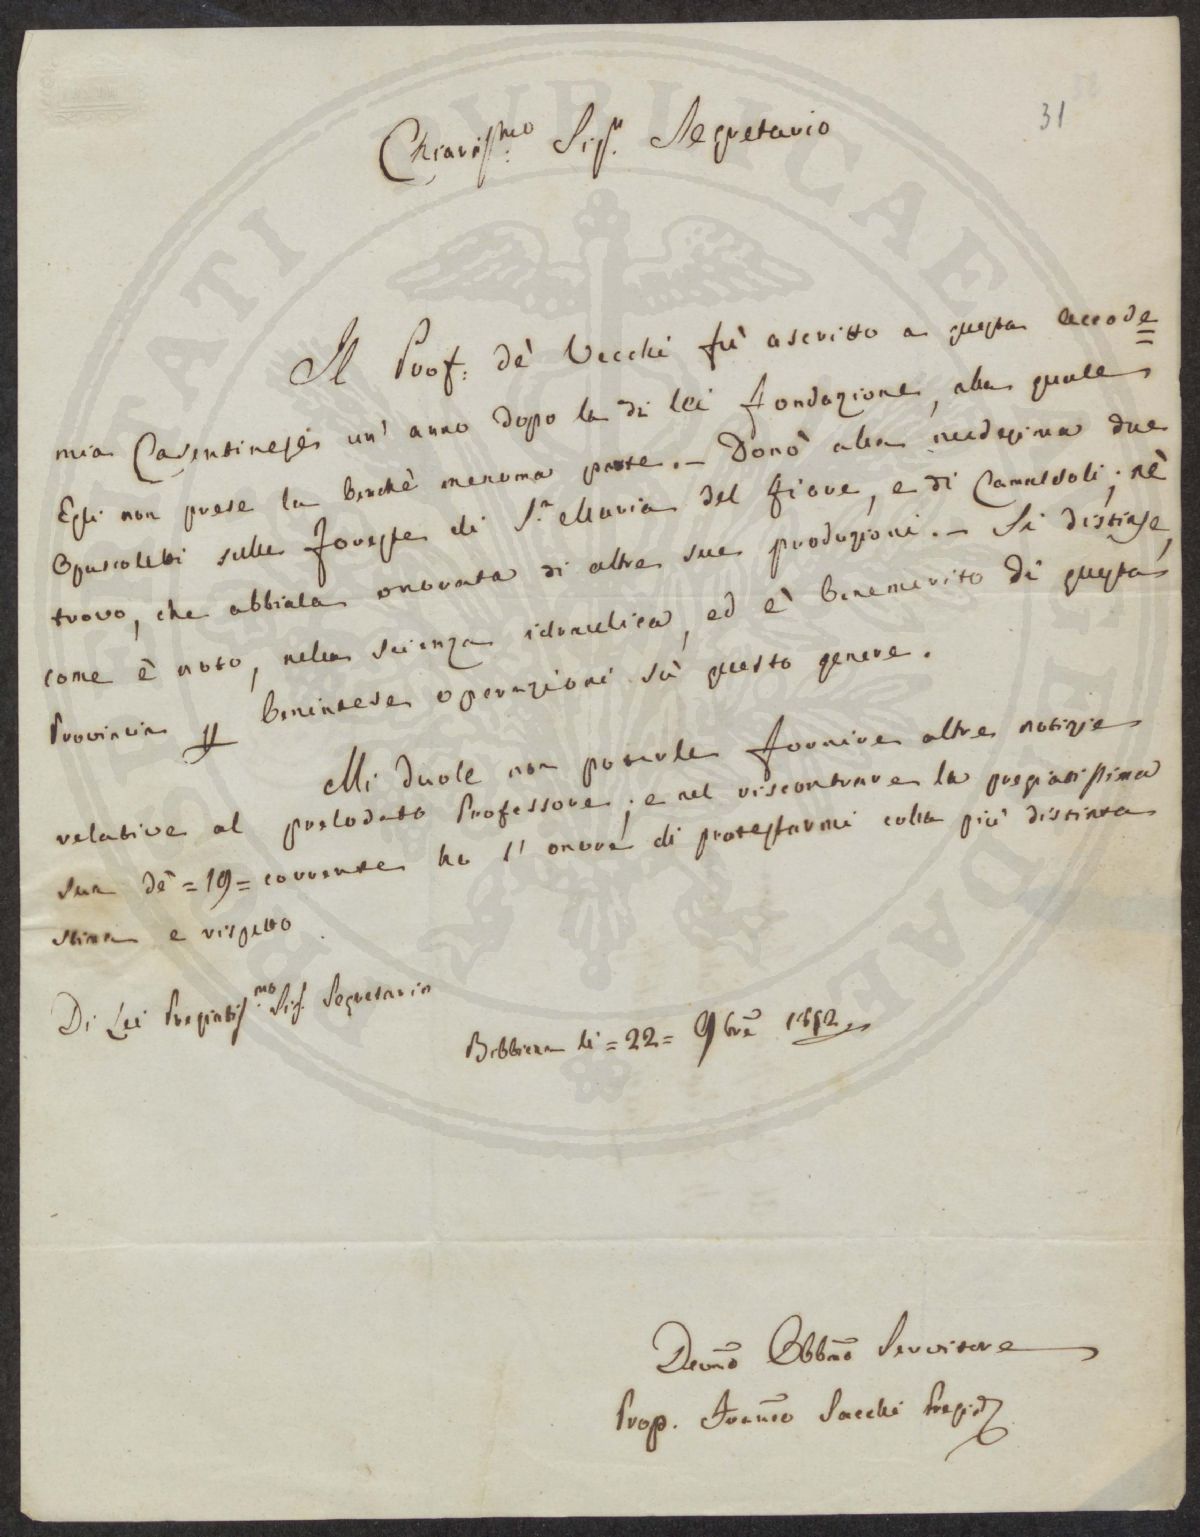 31
Chiariss.mo Sig.r Segretario
Il Prof: dè Vecchi fù ascritto a questa Accade=
mia Casentinese un' anno dopo la di lei fondazione, alla quale
Egli non prese la benchè menoma parte. – Donò alla medesima due
Opuscoletti sulle foreste di S.a Maria del fiore, e di Camaldoli; nè
trovo, che abbiala onorata di altre sue produzioni. – Si distinse,
come è noto, nella scienza idraulica, ed è benemerito di questa
Provincia benintese operazioni sù questo genere.
Mi duole non poterle fornire altre notizie
relative al prelodato Professore; e nel riscontrare la pregiatissima
sua dè =19= corrente ho l' onore di protestarmi colla più distinta
stima e rispetto
Di Lei Pregiatis.mo Sig. Segretario
Bibbiena li =22= 9bre
Devmo Obbmo Servitore
Prop. Franco Sacchi Presid